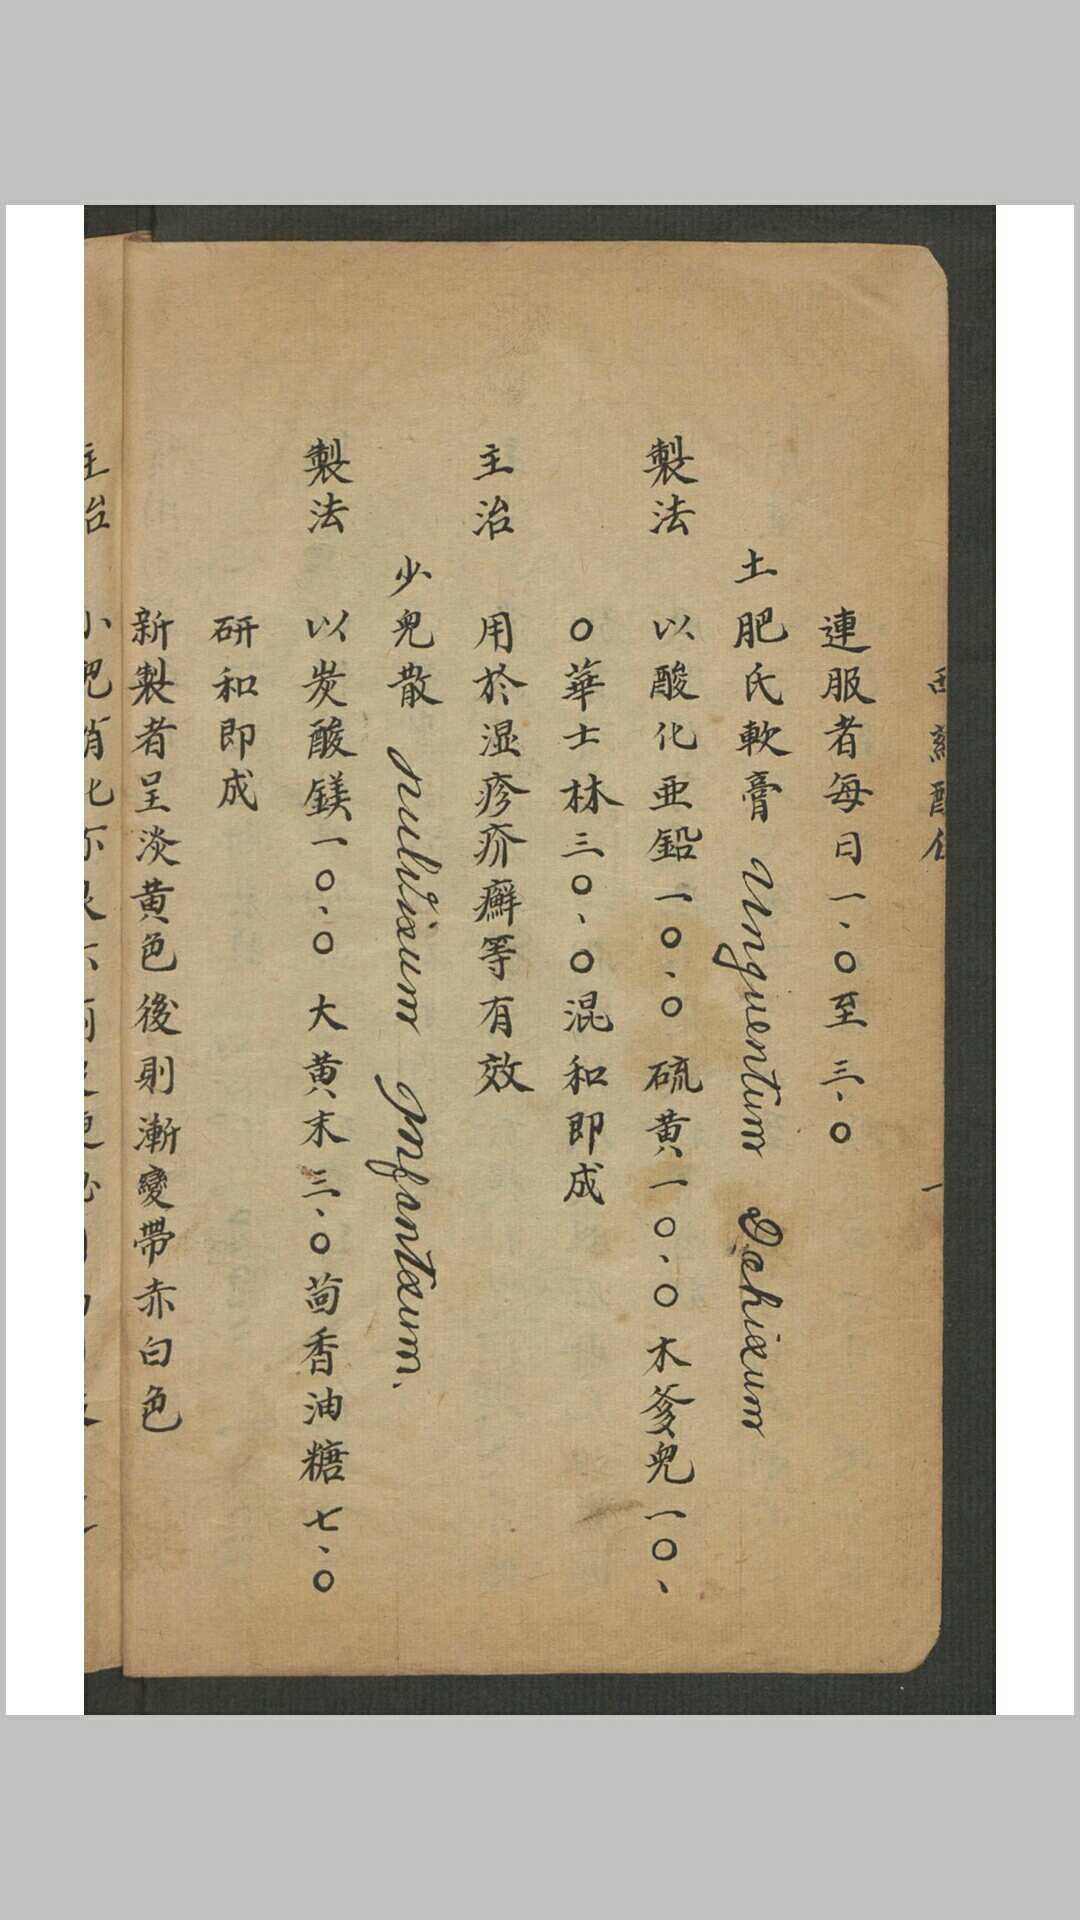 連服者每日一、〇至三、〇
土肥氏軟膏 Unguentum Dohixum
製法 以酸化亜鉛一〇、〇 硫黄一〇、〇木爹兒一〇、
〇華士林三〇、〇混和即成
主治 用於湿疹疥癬等有效
少兒散 pulvixum Infantxum.
製法 以炭酸鎂一〇、〇 大黄末三、〇茴香油糖七、〇
研和即成
新製者呈淡黄色後則漸變帶赤白色
主治